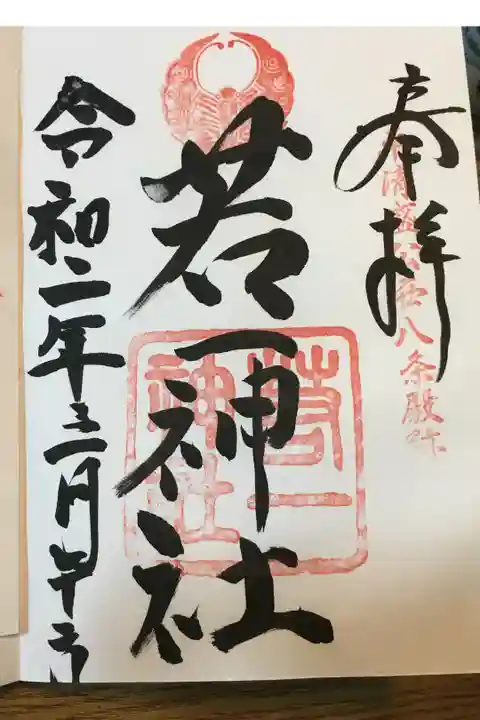 奉拝
清盛公西八条殿跡
若一神社
若一
神社
令和二年 月